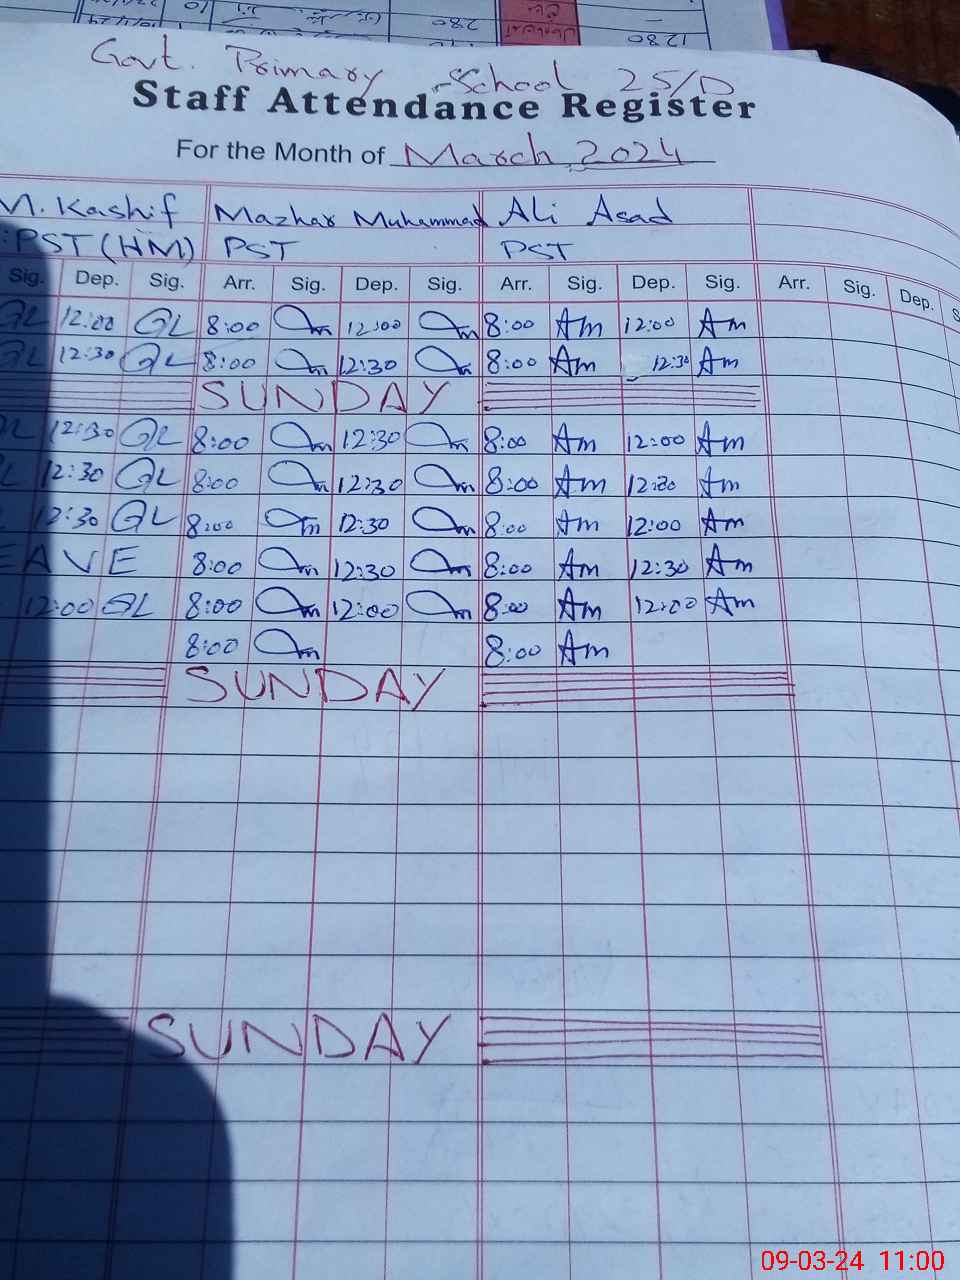 280
1280
Govt. Primary School 25/D
Staff Attendance Register
For the Month of March 2024
M. Kashif Mazhar Muhammad Ali Asad
PST (HM) PST PST
Sig. Dep. Sig. Arr. Sig. Dep. Sig. Arr. Sig. Dep. Sig. Arr. Sig. Dep. S
QL 12:00 QL 8:00 12:00 8:00 Am 12:00 Am
QL 12:30 QL 8:00 12:30 8:00 Am 12:30 Am
SUNDAY
QL 12:30 QL 8:00 12:30 8:00 Am 12:00 Am
L 12:30 QL 8:00 12:30 8:00 Am 12:30 Am
12:30 QL 8:00 12:30 8:00 Am 12:00 Am
EAVE 8:00 12:30 8:00 Am 12:30 Am
12:00 QL 8:00 12:00 8:00 Am 12:00 Am
8:00 8:00 Am
SUNDAY
SUNDAY
09-03-24 11:00